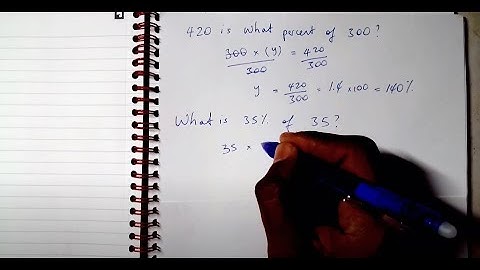 420 is what percent of 300?
300 × (y) = 420
300 300
y = 420 = 1.4 × 100 = 140%
300
What is 35% of 35?
35 ×